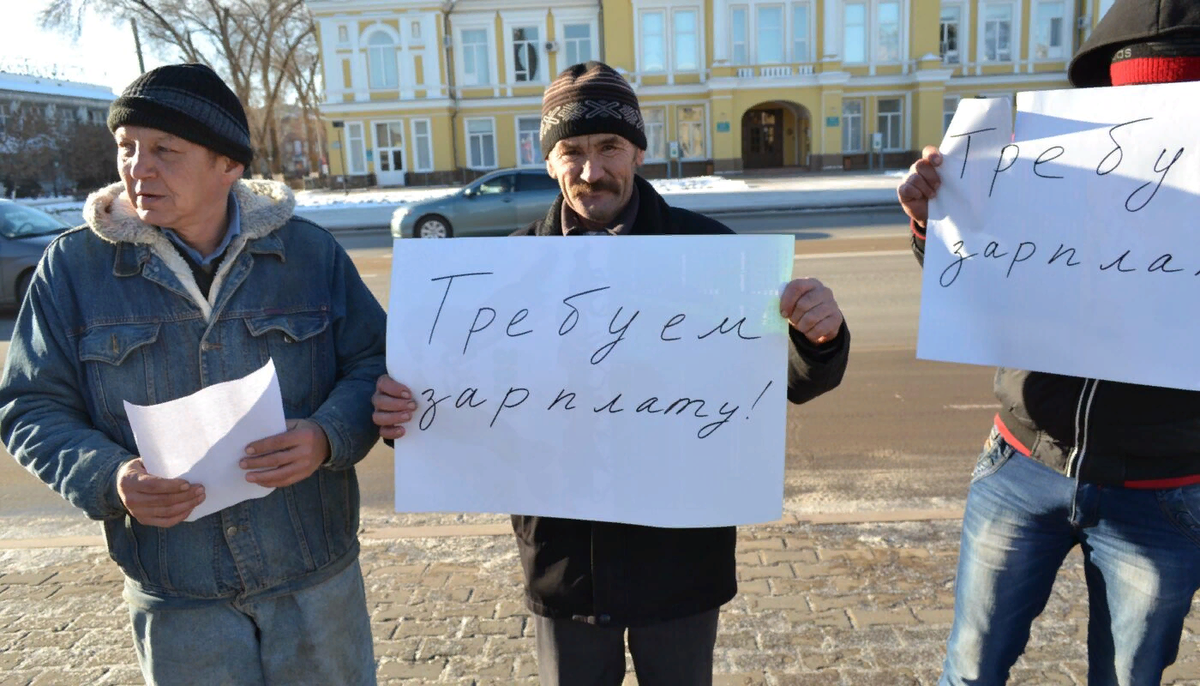 Требуем
зарплату!
Требу
зарпла